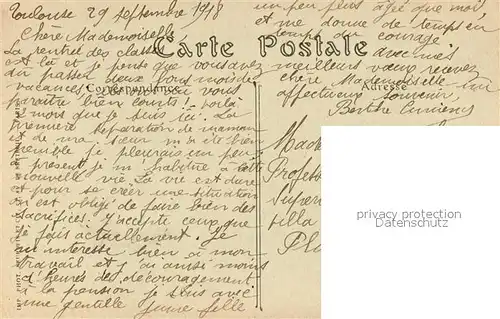 Toulouse 29 septembre 1918
Chère Mademoiselle
La rentrée des classes
est là et je pense que vous avez
du passer deux bons mois de
vacances qui vous
paraître bien courts! voilà
mois que je suis ici. La
première séparation de maman
et de ma sœur m'a été bien
pénible je pleurais un peu
à présent je m'habitue à cette
nouvelle vie. La vie est dure
et pour se créer une situation
on est obligé de faire bien des
sacrifices. j'accepte ceux que
je fais actuellement. Je
m'intéresse bien à mon
travail et j'ai aussi moins
d'heures de découragement
à la pension je suis avec
une gentille jeune fille
un peu plus âgée que moi
et me donne de temps en
temps du courage
meilleurs vœux recevez
chère Mademoiselle mon
affectueux souvenir.
Berthe
Carte Postale
Correspondance
Adresse
Profess
Supérie
Villa
privacy protection
privacy protection